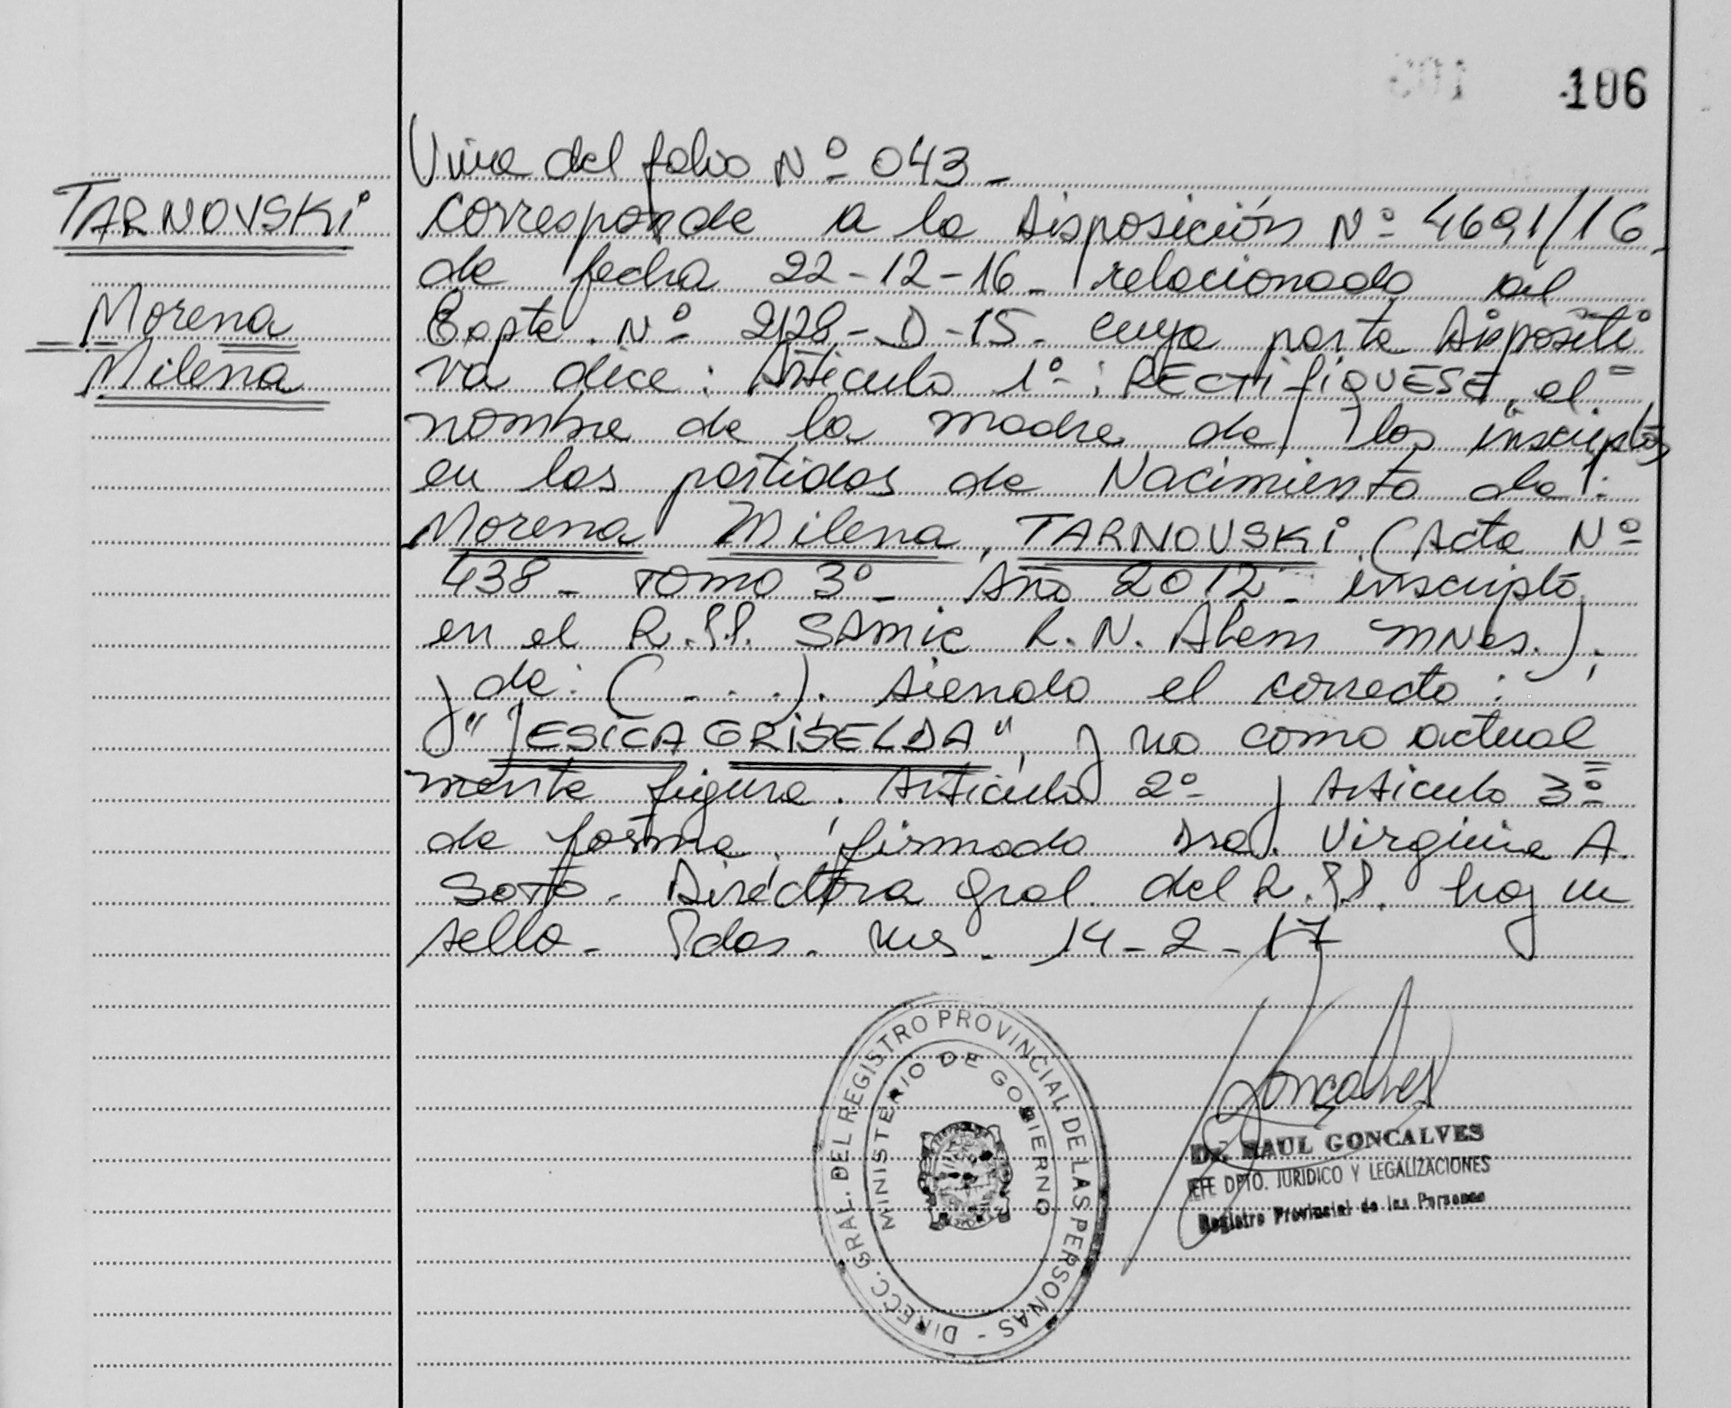 106
Viene del folio Nº 043_
TARNOVSKI
Morena
Milena
corresponde a la Disposición Nº 4691/16_
de fecha 22-12-16_ relacionado al
Expte. Nº 2128-D-15_ cuya parte Dispositi
va dice: Artículo 1º: RECTIFIQUESE, el
nombre de la madre de los inscriptos
en las partidas de Nacimiento de:
Morena Milena, TARNOVSKI (Acta Nº
438_ TOMO 3º_ Año 2012_ inscripta
en el R.P.P. SAMIC L.N. Alem Mnes.);
y de: (_..). siendo el correcto:
"JESICA GRISELDA", y no como actual
mente figura. Artículo 2º y Artículo 3º
de forma. firmado Dra. Virginia A.
Soto. Directora Gral. del R.P.P. hay un
sello_ Pdas. Mns_ 14-2-17
DIRECC. GRAL. DEL REGISTRO PROVINCIAL DE LAS PERSONAS -
MINISTERIO DE GOBIERNO
Goncalves
Dr. RAUL GONCALVES
JEFE DPTO. JURIDICO Y LEGALIZACIONES
Registro Provincial de las Personas